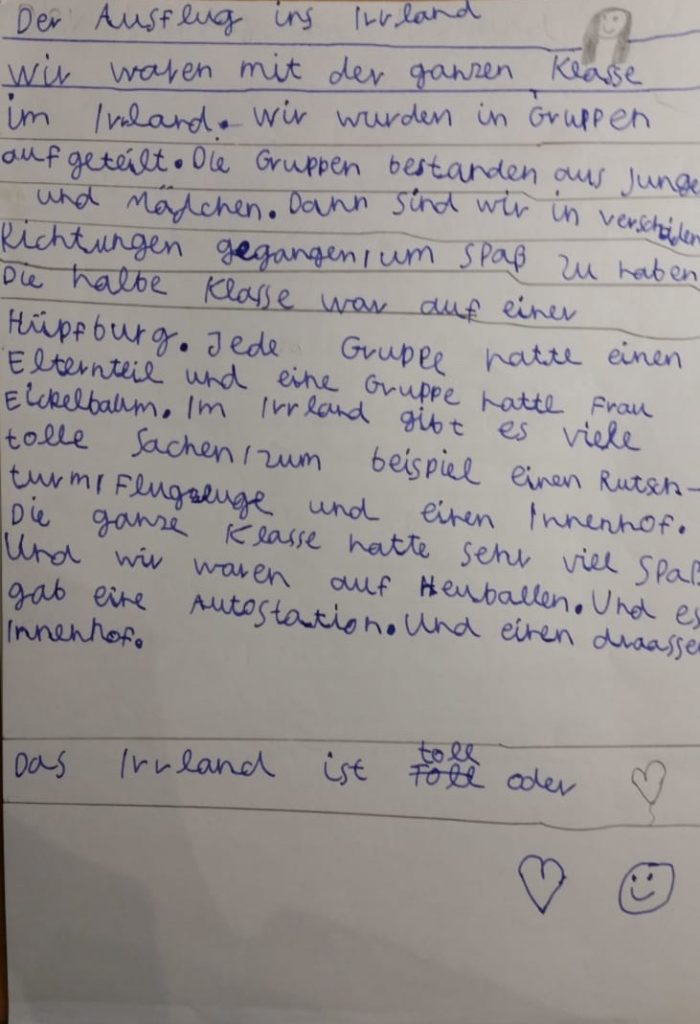 Der Ausflug ins Irrland
Wir waren mit der ganzen Klasse
im Irrland. Wir wurden in Gruppen
aufgeteilt. Die Gruppen bestanden aus Junge
und Mädchen. Dann sind wir in verschiden
Richtungen gegangen, um Spaß zu haben
Die halbe Klasse war auf einer
Hüpfburg. Jede Gruppe hatte einen
Elternteil und eine Gruppe hatte Frau
Eickelbaum. Im Irrland gibt es viele
tolle Sachen, zum beispiel einen Rutsch-
turm, Flugzeuge und einen Innenhof.
Die ganze Klasse hatte sehr viel Spaß
Und wir waren auf Heuballen. Und es
gab eine Autostation. Und einen draasse
Innenhof.
Das Irrland ist toll oder